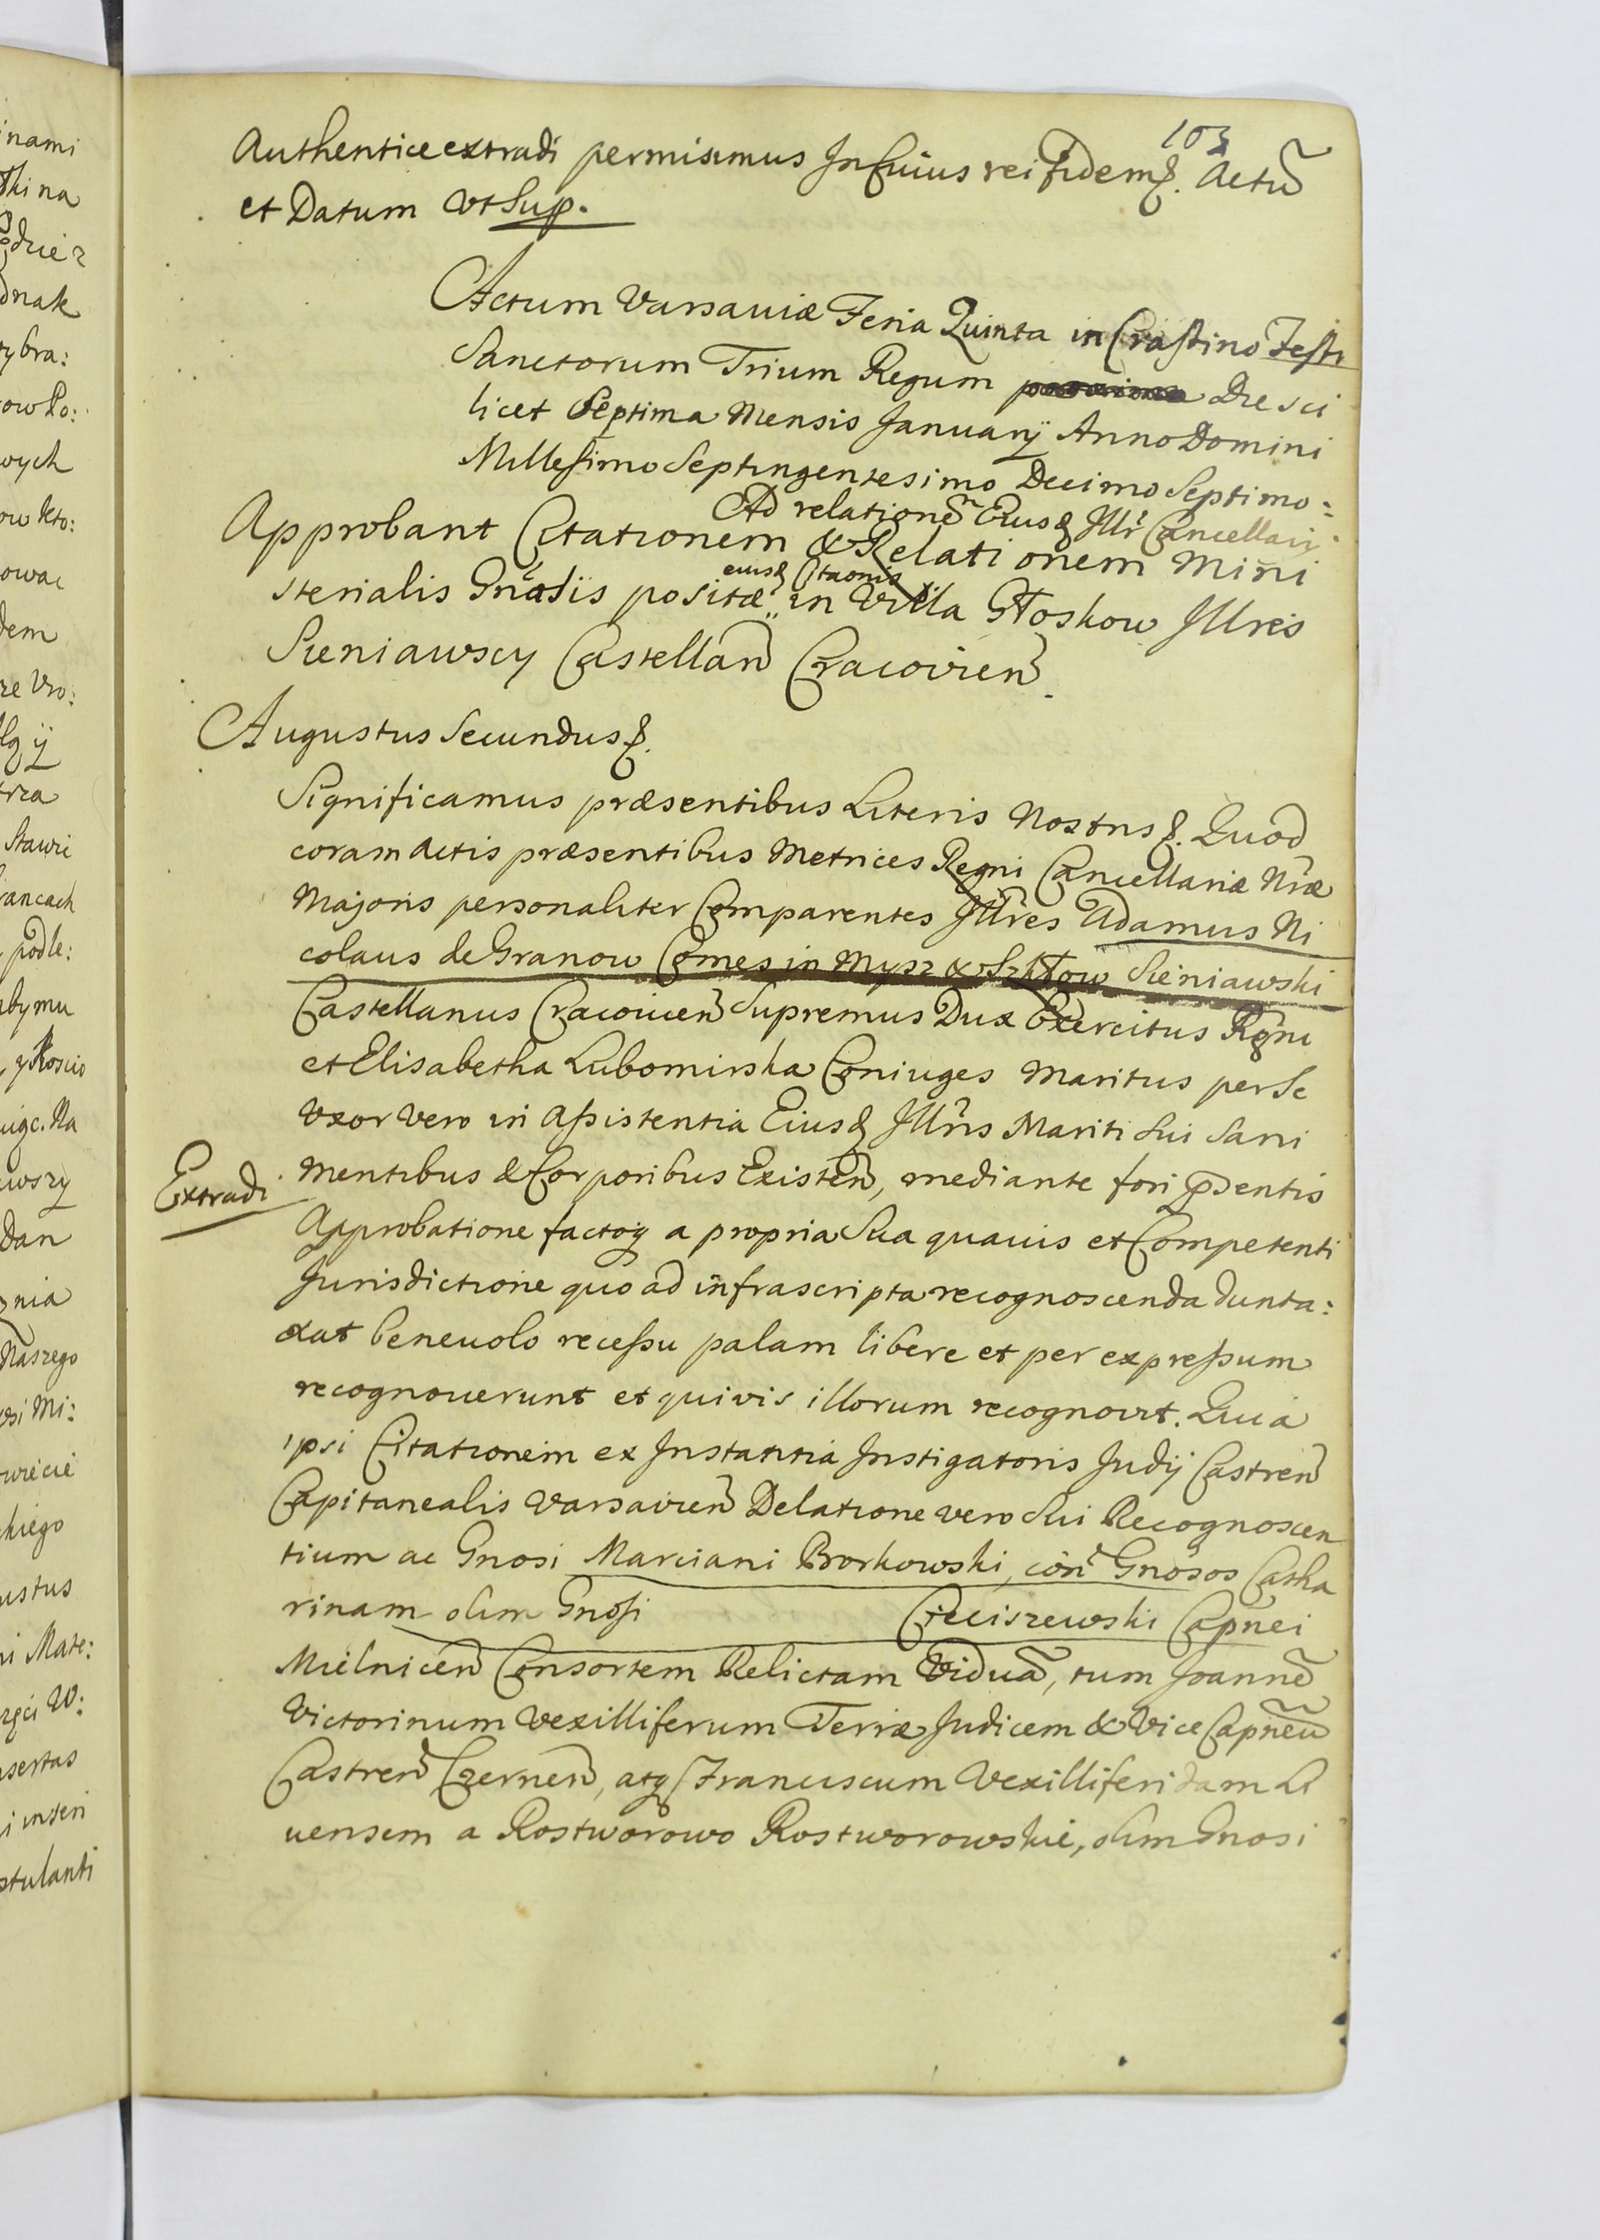 103
Authentice extradi permisimus In Cuius rei fidem &. Actũ
et Datum Vt Sup.
Actum Varsaviæ Feria Quinta in Crastino Festi
Sanctorum Trium Regum Die sci
licet Septima Mensis Januarij Anno Domini
Millesimo Septingentesimo Decimo Septimo:
Ad relationẽ Eiusq Jllr Cancellarij
Approbant Citationem & Relationem Mini
sterialis Gnalis positæ eiusq Citaonis in Villa Głoskow Jllres
Sieniawscy Castellañ Cracovień.
Augustus Secundus &.
Significamus præsentibus Literis Nostris &. Quod
coram Actis præsentibus Metrices Regni Cancellariæ Nræ
Majoris personaliter Comparentes Jllres Adamus Ni
colaus de Granow Comes in Mysz & Szkłow Sieniawski
Castellanus Cracouień Supremus Dux Exercitus Regni
et Elisabetha Lubomirska Coniuges Maritus per se
Vxor vero in Assistentia Eiusq Jllris Mariti sui Sani
Extradi
Mentibus & Corporibus Existeñ, mediante fori pñdentis
Approbatione factoq a propria sua quauis et Competenti
Jurisdictione quo ad infrascripta recognoscenda dunta:
xat beneuolo recessu palam libere et per expressum
recognouerunt et quivis illorum recognovit. Quia
ipsi Citationem ex Instantia Instigatoris Judij Castreñ
Capitanealis Varsavieñ Delatione vero sui Recognoscen
tium ac Gnosi Marciani Borkowski, coñ Gnosos Catha
rinam olim Gnosi Cieciszewski Capnei
Mielniceñ Consortem Relictam Viduã, tum Joannẽ
Victorinum Vexilliferum Terræ Judicem & Vice Capneũ
Castreñ Czerneñ, atq Franciscum Vexilliferidam Li
uensem a Rostworowo Rostworowskie, olim Gnosi